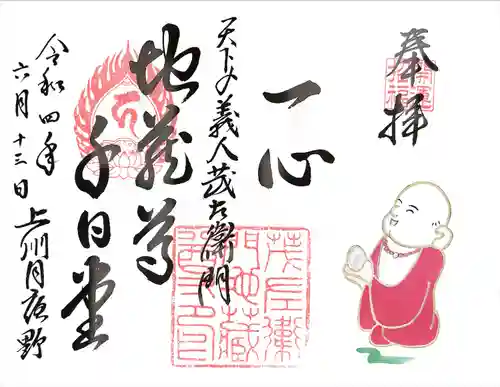 奉拝
開運
招福
一心
天下の義人茂左衛門
地蔵尊
千日堂
令和四年
六月十三日
上州月夜野
茂左衛
門地蔵